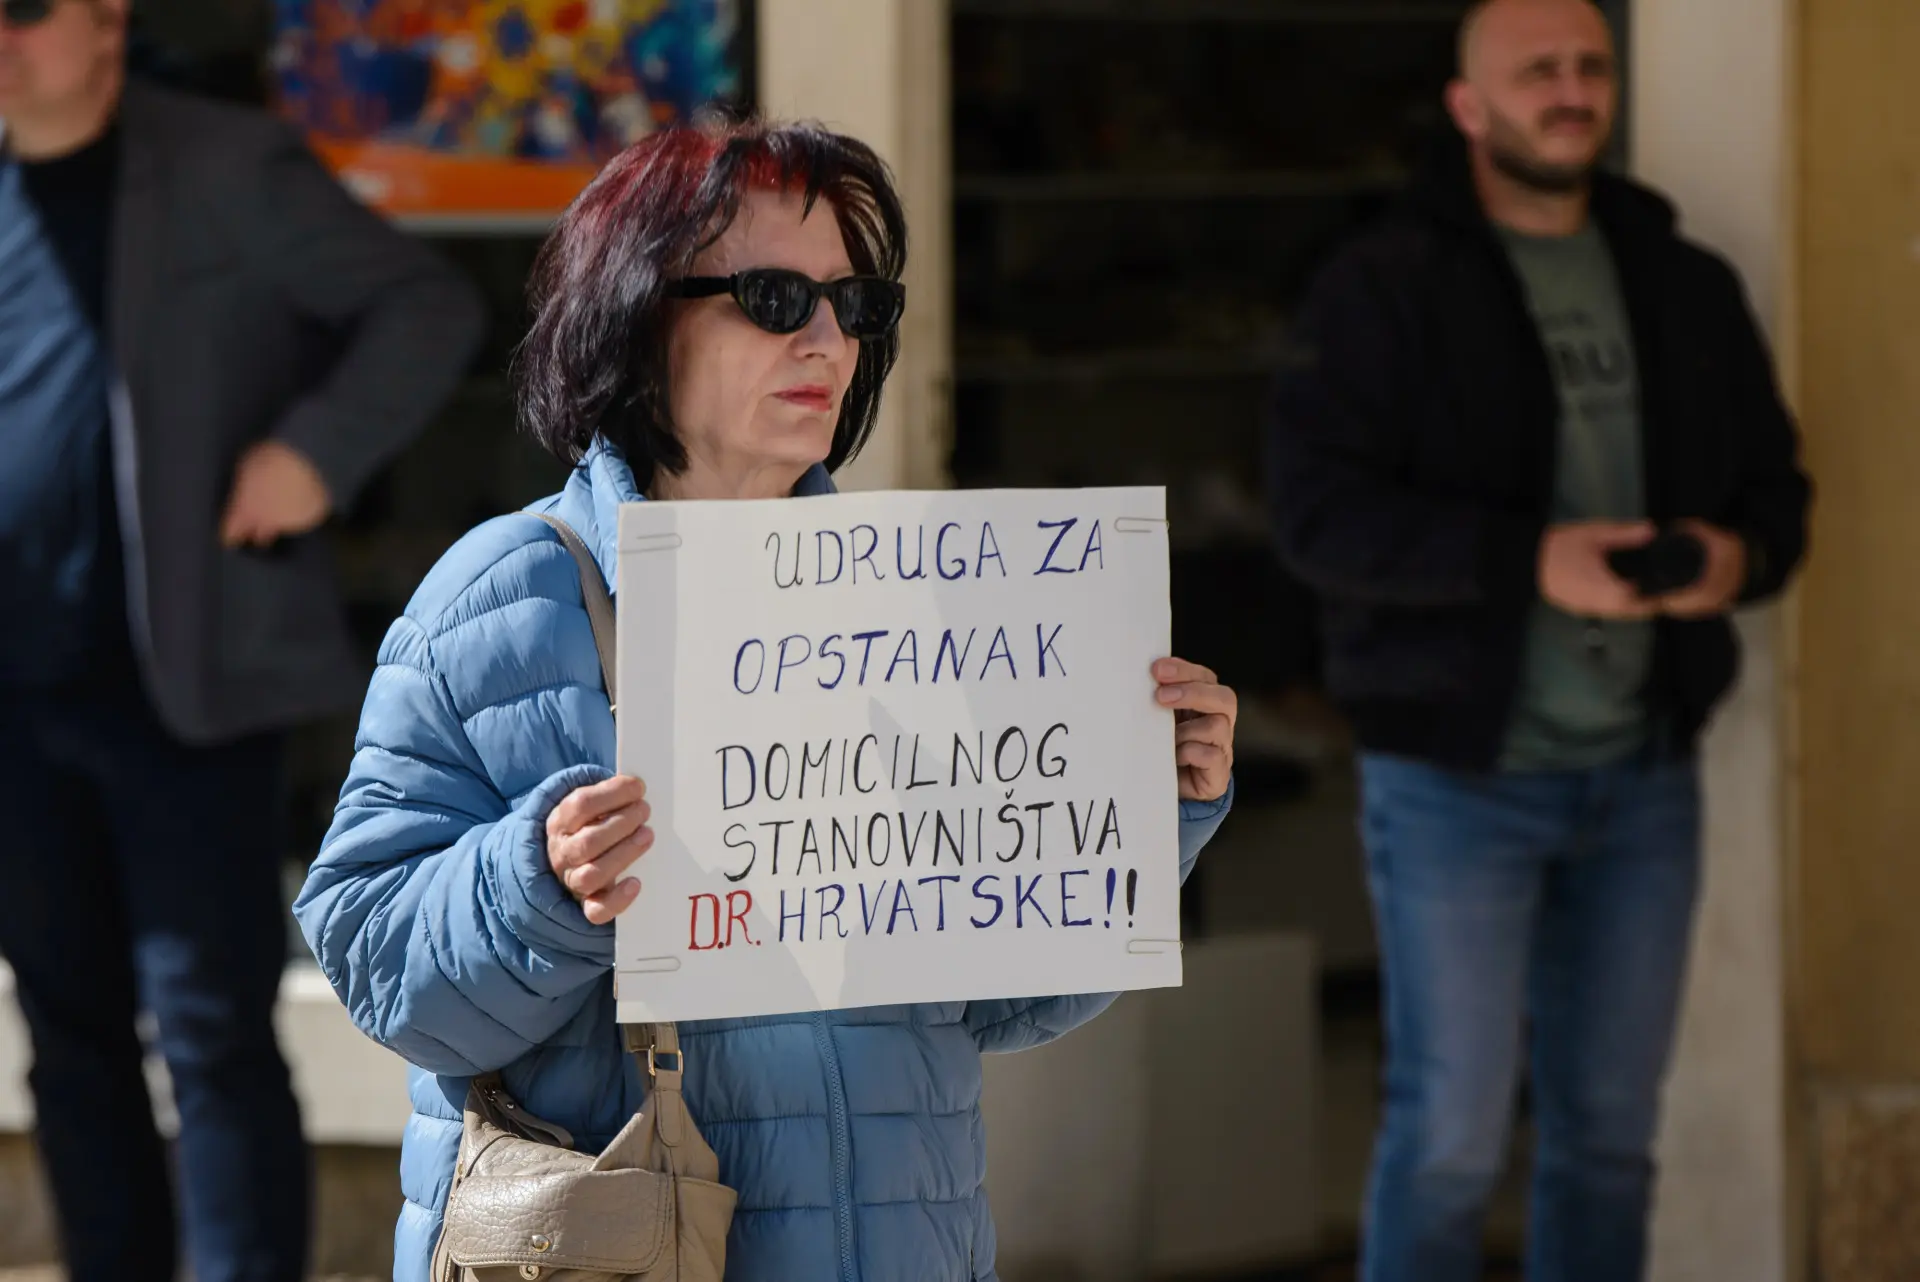 UDRUGA ZA
OPSTANAK
DOMICILNOG
STANOVNIŠTVA
D.R. HRVATSKE!!